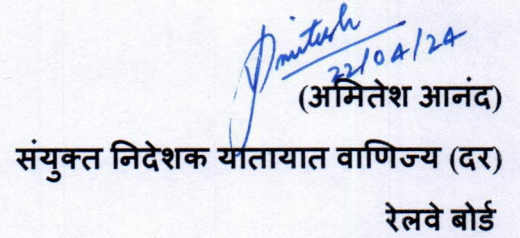 Amitesh
22/04/24
(अमितेश आनंद)
संयुक्त निदेशक यातायात वाणिज्य (दर)
रेलवे बोर्ड